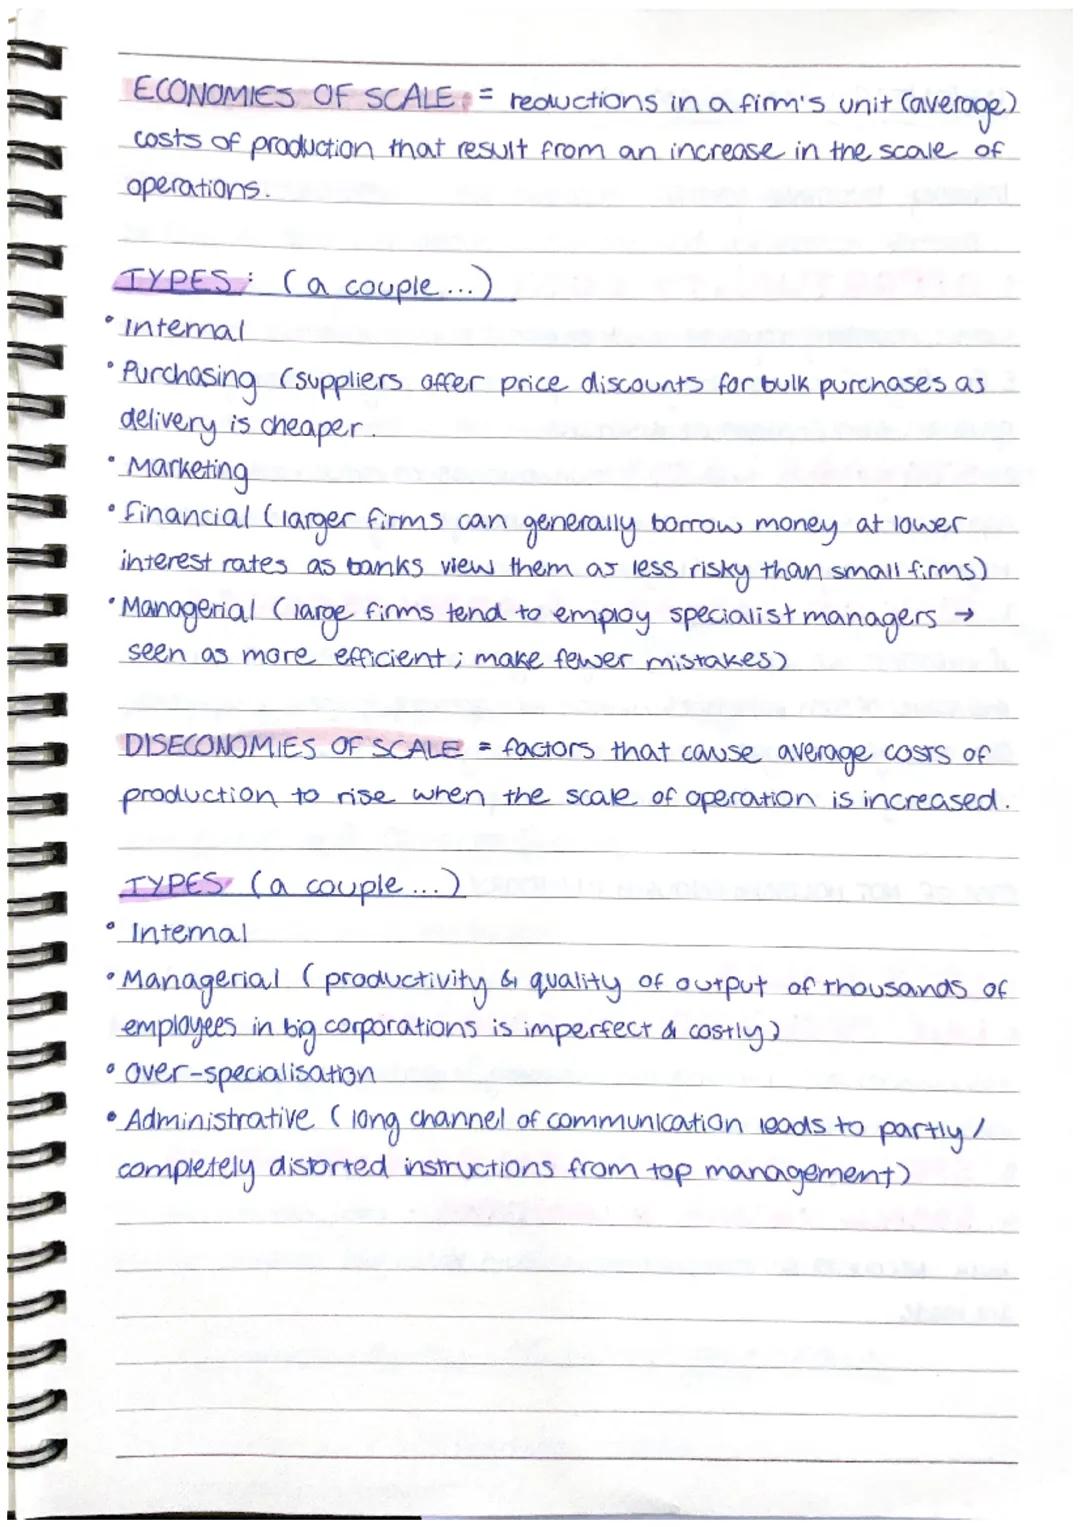 ECONOMIES OF SCALE: = reductions in a firm's unit (average)
costs of production that result from an increase in the scale of
operations.
TYPES: (a couple...)
• Internal
• Purchasing (suppliers offer price discounts for bulk purchases as
delivery is cheaper.
• Marketing
• Financial (larger firms can generally borrow money at lower
interest rates as banks view them as less risky than small firms)
• Managerial (large firms tend to employ specialist managers →
seen as more efficient; make fewer mistakes)
DISECONOMIES OF SCALE = factors that cause average costs of
production to rise when the scale of operation is increased.
TYPES: (a couple...)
• Internal
• Managerial (productivity & quality of output of thousands of
employees in big corporations is imperfect & costly)
• Over-specialisation
• Administrative (long channel of communication leads to partly/
completely distorted instructions from top management)